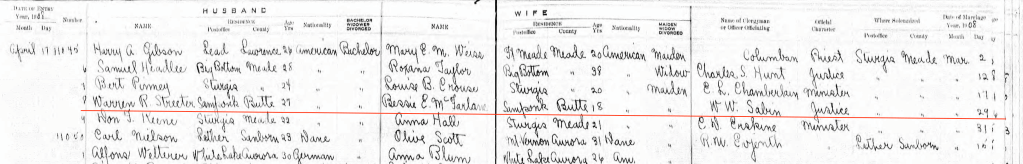 HUSBAND WIFE
DATE OF ENTRY Year, 1908 Month Day Number NAME RESIDENCE Postoffice County Age Yrs Nationality BACHELOR WIDOWER DIVORCED NAME RESIDENCE Postoffice County Age Yrs Nationality MAIDEN WIDOW DIVORCED Name of Clergyman or Other Officiating Official Character Where Solemnized Postoffice County Date of Marriage 1908 Month Day
April 17 Harry A Gibson Lead Lawrence 24 American Bachelor Mary E. M. Weiss Ft Meade Meade 20 American Maiden Columban Priest Sturgis Meade Mar. 2
Samuel Headlee Big Bottom Meade 28 " " Roxana Taylor Big Bottom " 38 " Widow Charles S. Hunt Justice " " "
Bert Pinney Sturgis " 24 " " Louise B. Crouse Sturgis " 20 " Maiden E. L. Chamberlain Minister " " " 17
Warren R Streeter Butte 27 " " Bessie E. Butte 18 " " W W. Sabin Justice " " " 29
Don J. Keene Sturgis Meade 22 " " Anna Hall Sturgis Meade 21 " " E. W. Erskine Minister " " " 31
1105 Carl Nielson Sanborn 23 Dane " Olive Scott Mt Vernon Aurora 31 Dane " R. M. Sanborn "
Alfons White Lake Aurora 30 German " Anna Blum White Lake Aurora 24 Am. "